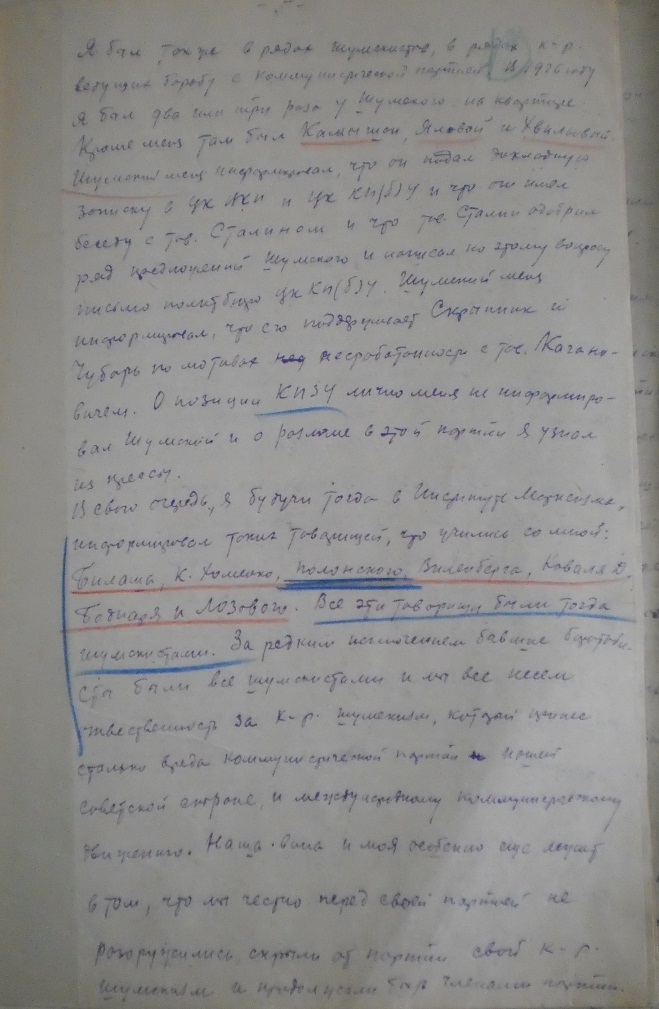 Я был также в рядах шумскистов, в рядах к-р.
ведущих борьбу с коммунистической партией. В 1926 году
я был два или три раза у Шумского на квартире
Кроме меня там был Яловой и Хвыльовый.
Шумский меня информировал, что он подал докладную
записку в ЦК ВКП и ЦК КП(б)У и что он имел
беседу с тов. Сталином и что тов. Сталин одобрил
ряд предложений Шумского и написал по этому вопросу
письмо политбюро ЦК КП(б)У. Шумский меня
информировал, что его поддерживает Скрыпник и
Чубарь по мотивам несработанности с тов. Кагано-
вичем. О позиции КПЗУ лично меня не информиро-
вал Шумский и о расколе в этой партии я узнал
из прессы.
В свою очередь, я будучи тогда в Институте Марксизма,
информировал таких товарищей, что учились со мной:
Билаша, К. Хоменко, Полонского, Виленберга, Коваля Д.
Боднаря и Лозового. Все эти товарищи были тогда
шумскистами. За редким исключением бывшие боротьби-
сты были все шумскистами и мы все несем
ответственность за к-р. шумскизм, который принес
столько вреда коммунистической партии и нашей
советской стороне, и международному коммунистическому
движению. Наша вина и моя особенно еще лежит
в том, что мы честно перед своей партией не
разоружились, скрыли от партии свой к-р.
шумскизм и продолжали быть членами партии.